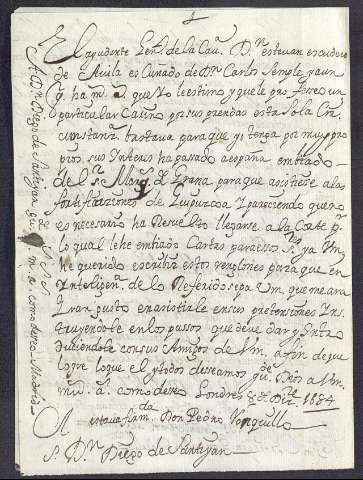 El ayudante Gen.l de la Cav.a D.n estevan escudero
de Avila es Cuñado de D.n Carlos Semple, y aun
q. ha m. a. que Yo le estimo y que le profeso un
particular Cariño por sus prendas esta sola Cir
cunstanz.a bastava para que yo tenga por muy pro
prios sus Yntereses ha passado a españa embiado
del S.or Marq.s d Grana para que asistiese a las
fortificaziones de Guipuzcoa y pareciendo que no
es necesario ha Resuelto llegarse a la Corte p.
lo qual le he embiado Cartas para essos S.res ya Vm
he querido escribir estos renglones para que en
Yntelijen.a de lo Referido sepa Vm que me ara
Gran gusto en asistirle en sus pretensiones Yns
truyendole en los passos que deve dar y Yntro
duciendole con sus Amigos de Vm. a fin de que
logre lo que el y todos deseamos gu.e Dios a Vm
m. a. como deseo Londres 8 de Di.re 1684
estava firm.da Don Pedro Ronquillo
S. D.n Diego de Santeyan
A D.n Diego de Santeyan gu.e m. a. como deseo Madrid